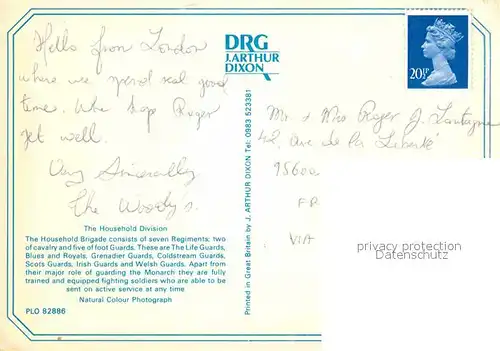 Hello from London
where we spend real good
time. We hope Roger
get well.
Very Sincerally
The Woody's.
The Household Division
The Household Brigade consists of seven Regiments; two
of cavalry and five of foot Guards. These are The Life Guards,
Blues and Royals, Grenadier Guards, Coldstream Guards,
Scots Guards, Irish Guards and Welsh Guards. Apart from
their major role of guarding the Monarch they are fully
trained and equipped fighting soldiers who are able to be
sent on active service at any time
Natural Colour Photograph
PLO 82886
DRG
J. ARTHUR
DIXON
Printed in Great Britain by J. ARTHUR DIXON Tel: 0983 523381
20½P
Mr & Mrs Roger J.
42, Ave de la Liberté
95600
FR
VIA
privacy protection
Akpool.de